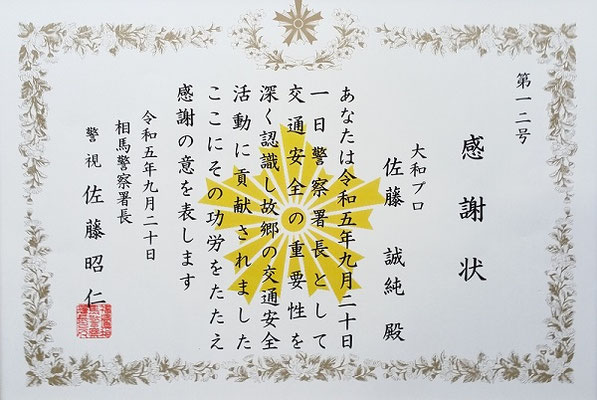 第一二号
感謝状
大和プロ
佐藤誠純殿
あなたは令和五年九月二十日
一日警察署長として
交通安全の重要性を
深く認識し故郷の交通安全
活動に貢献されました
ここにその功労をたたえ
感謝の意を表します
令和五年九月二十日
相馬警察署長
警視佐藤昭仁